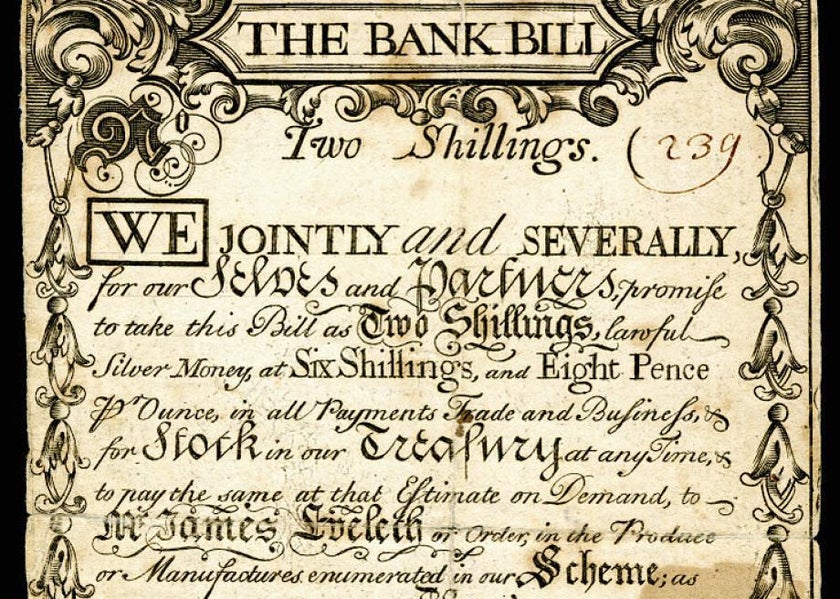 THE BANK BILL
No Two Shillings. (239)
WE JOINTLY and SEVERALLY,
for our Selves and Partners, promise
to take this Bill as Two Shillings, lawful
Silver Money, at Six Shillings, and Eight Pence
Pr Ounce, in all Payments Trade and Business, &
for Stock in our Treasury at any Time, &
to pay the same at that Estimate on Demand, to
Mr James Eveleth or Order, in the Produce
or Manufactures enumerated in our Scheme; as